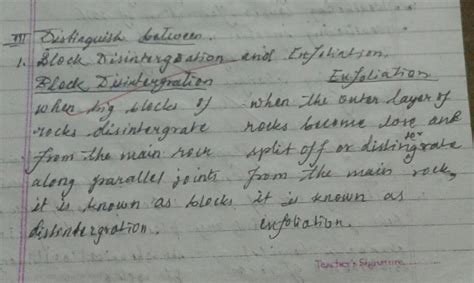 III Distinguish between.
1. Block Disintergration and Exfoliation.
Block Disintergration Exfoliation
when big blocks of when the outer layer of
rocks disintergrate rocks become lose and
from the main rock split off or distingrate
along parallel joints from the main rock,
it is known as blocks it is known as
distintergration. exfoliation.
Teacher's Signature